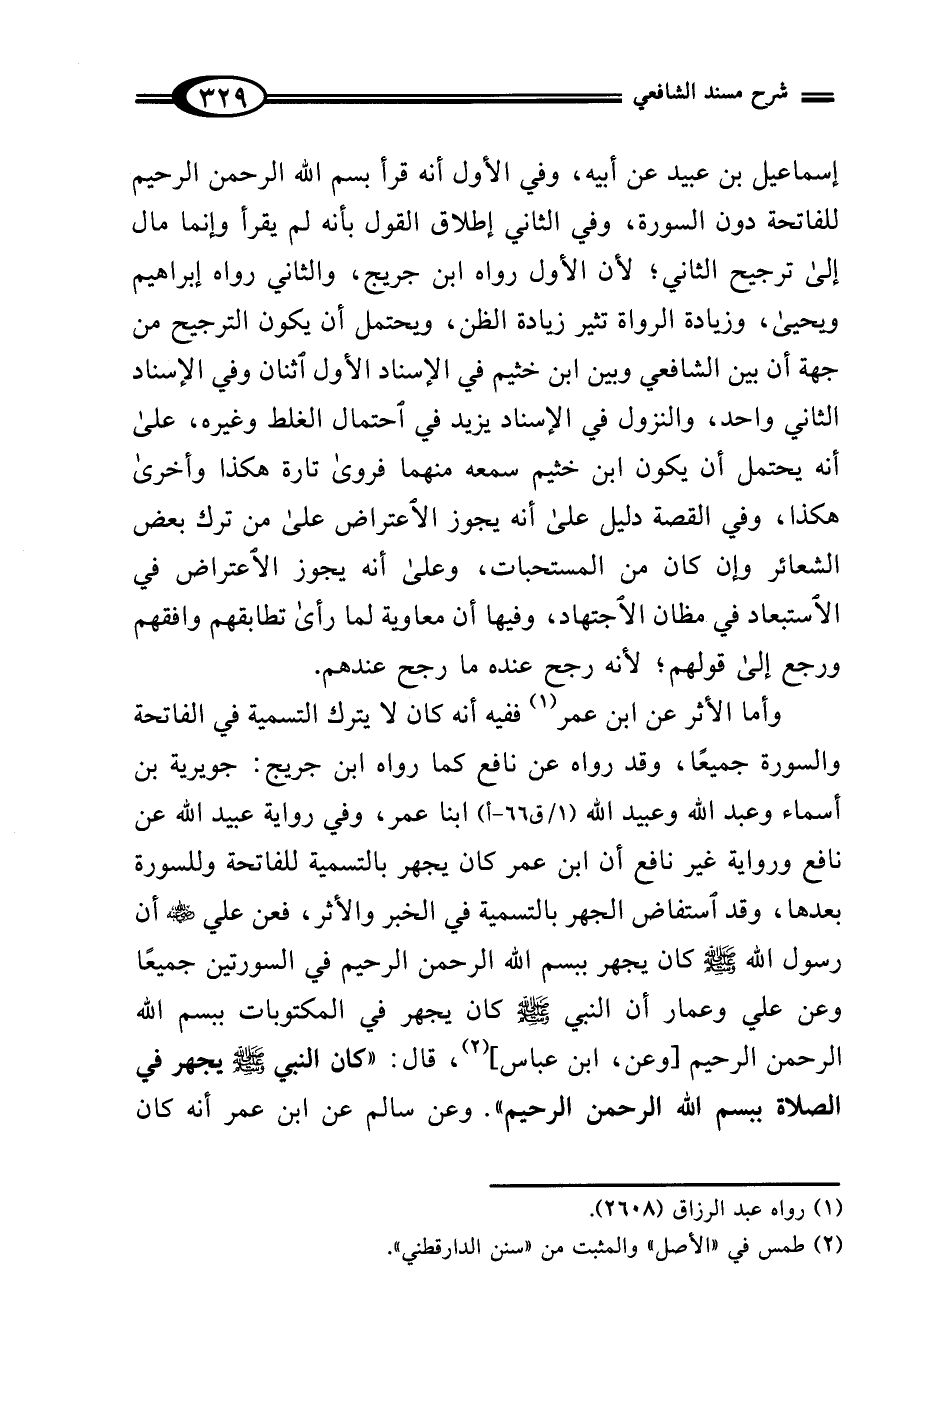 شرح مسند الشافعي
٣٢٩
إسماعيل بن عبيد عن أبيه، وفي الأول أنه قرأ بسم الله الرحمن الرحيم
للفاتحة دون السورة، وفي الثاني إطلاق القول بأنه لم يقرأ وإنما مال
إلىٰ ترجيح الثاني؛ لأن الأول رواه ابن جريج، والثاني رواه إبراهيم
ويحيىٰ، وزيادة الرواة تثير زيادة الظن، ويحتمل أن يكون الترجيح من
جهة أن بين الشافعي وبين ابن خثيم في الإسناد الأول ٱثنان وفي الإسناد
الثاني واحد، والنزول في الإسناد يزيد في ٱحتمال الغلط وغيره، علىٰ
أنه يحتمل أن يكون ابن خثيم سمعه منهما فروىٰ تارة هكذا وأخرىٰ
هكذا، وفي القصة دليل علىٰ أنه يجوز الٱعتراض علىٰ من ترك بعض
الشعائر وإن كان من المستحبات، وعلىٰ أنه يجوز الٱعتراض في
الٱستبعاد في مظان الٱجتهاد، وفيها أن معاوية لما رأىٰ تطابقهم وافقهم
ورجع إلىٰ قولهم؛ لأنه رجح عنده ما رجح عندهم.
وأما الأثر عن ابن عمر(١) ففيه أنه كان لا يترك التسمية في الفاتحة
والسورة جميعًا، وقد رواه عن نافع كما رواه ابن جريج: جويرية بن
أسماء وعبد الله وعبيد الله (١/ق٦٦-أ) ابنا عمر، وفي رواية عبيد الله عن
نافع ورواية غير نافع أن ابن عمر كان يجهر بالتسمية للفاتحة وللسورة
بعدها، وقد ٱستفاض الجهر بالتسمية في الخبر والأثر، فعن علي رضي الله عنه أن
رسول الله ﷺ كان يجهر ببسم الله الرحمن الرحيم في السورتين جميعًا
وعن علي وعمار أن النبي ﷺ كان يجهر في المكتوبات ببسم الله
الرحمن الرحيم [وعن، ابن عباس](٢)، قال: «كان النبي ﷺ يجهر في
الصلاة ببسم الله الرحمن الرحيم». وعن سالم عن ابن عمر أنه كان
(١) رواه عبد الرزاق (٢٦٠٨).
(٢) طمس في «الأصل» والمثبت من «سنن الدارقطني».